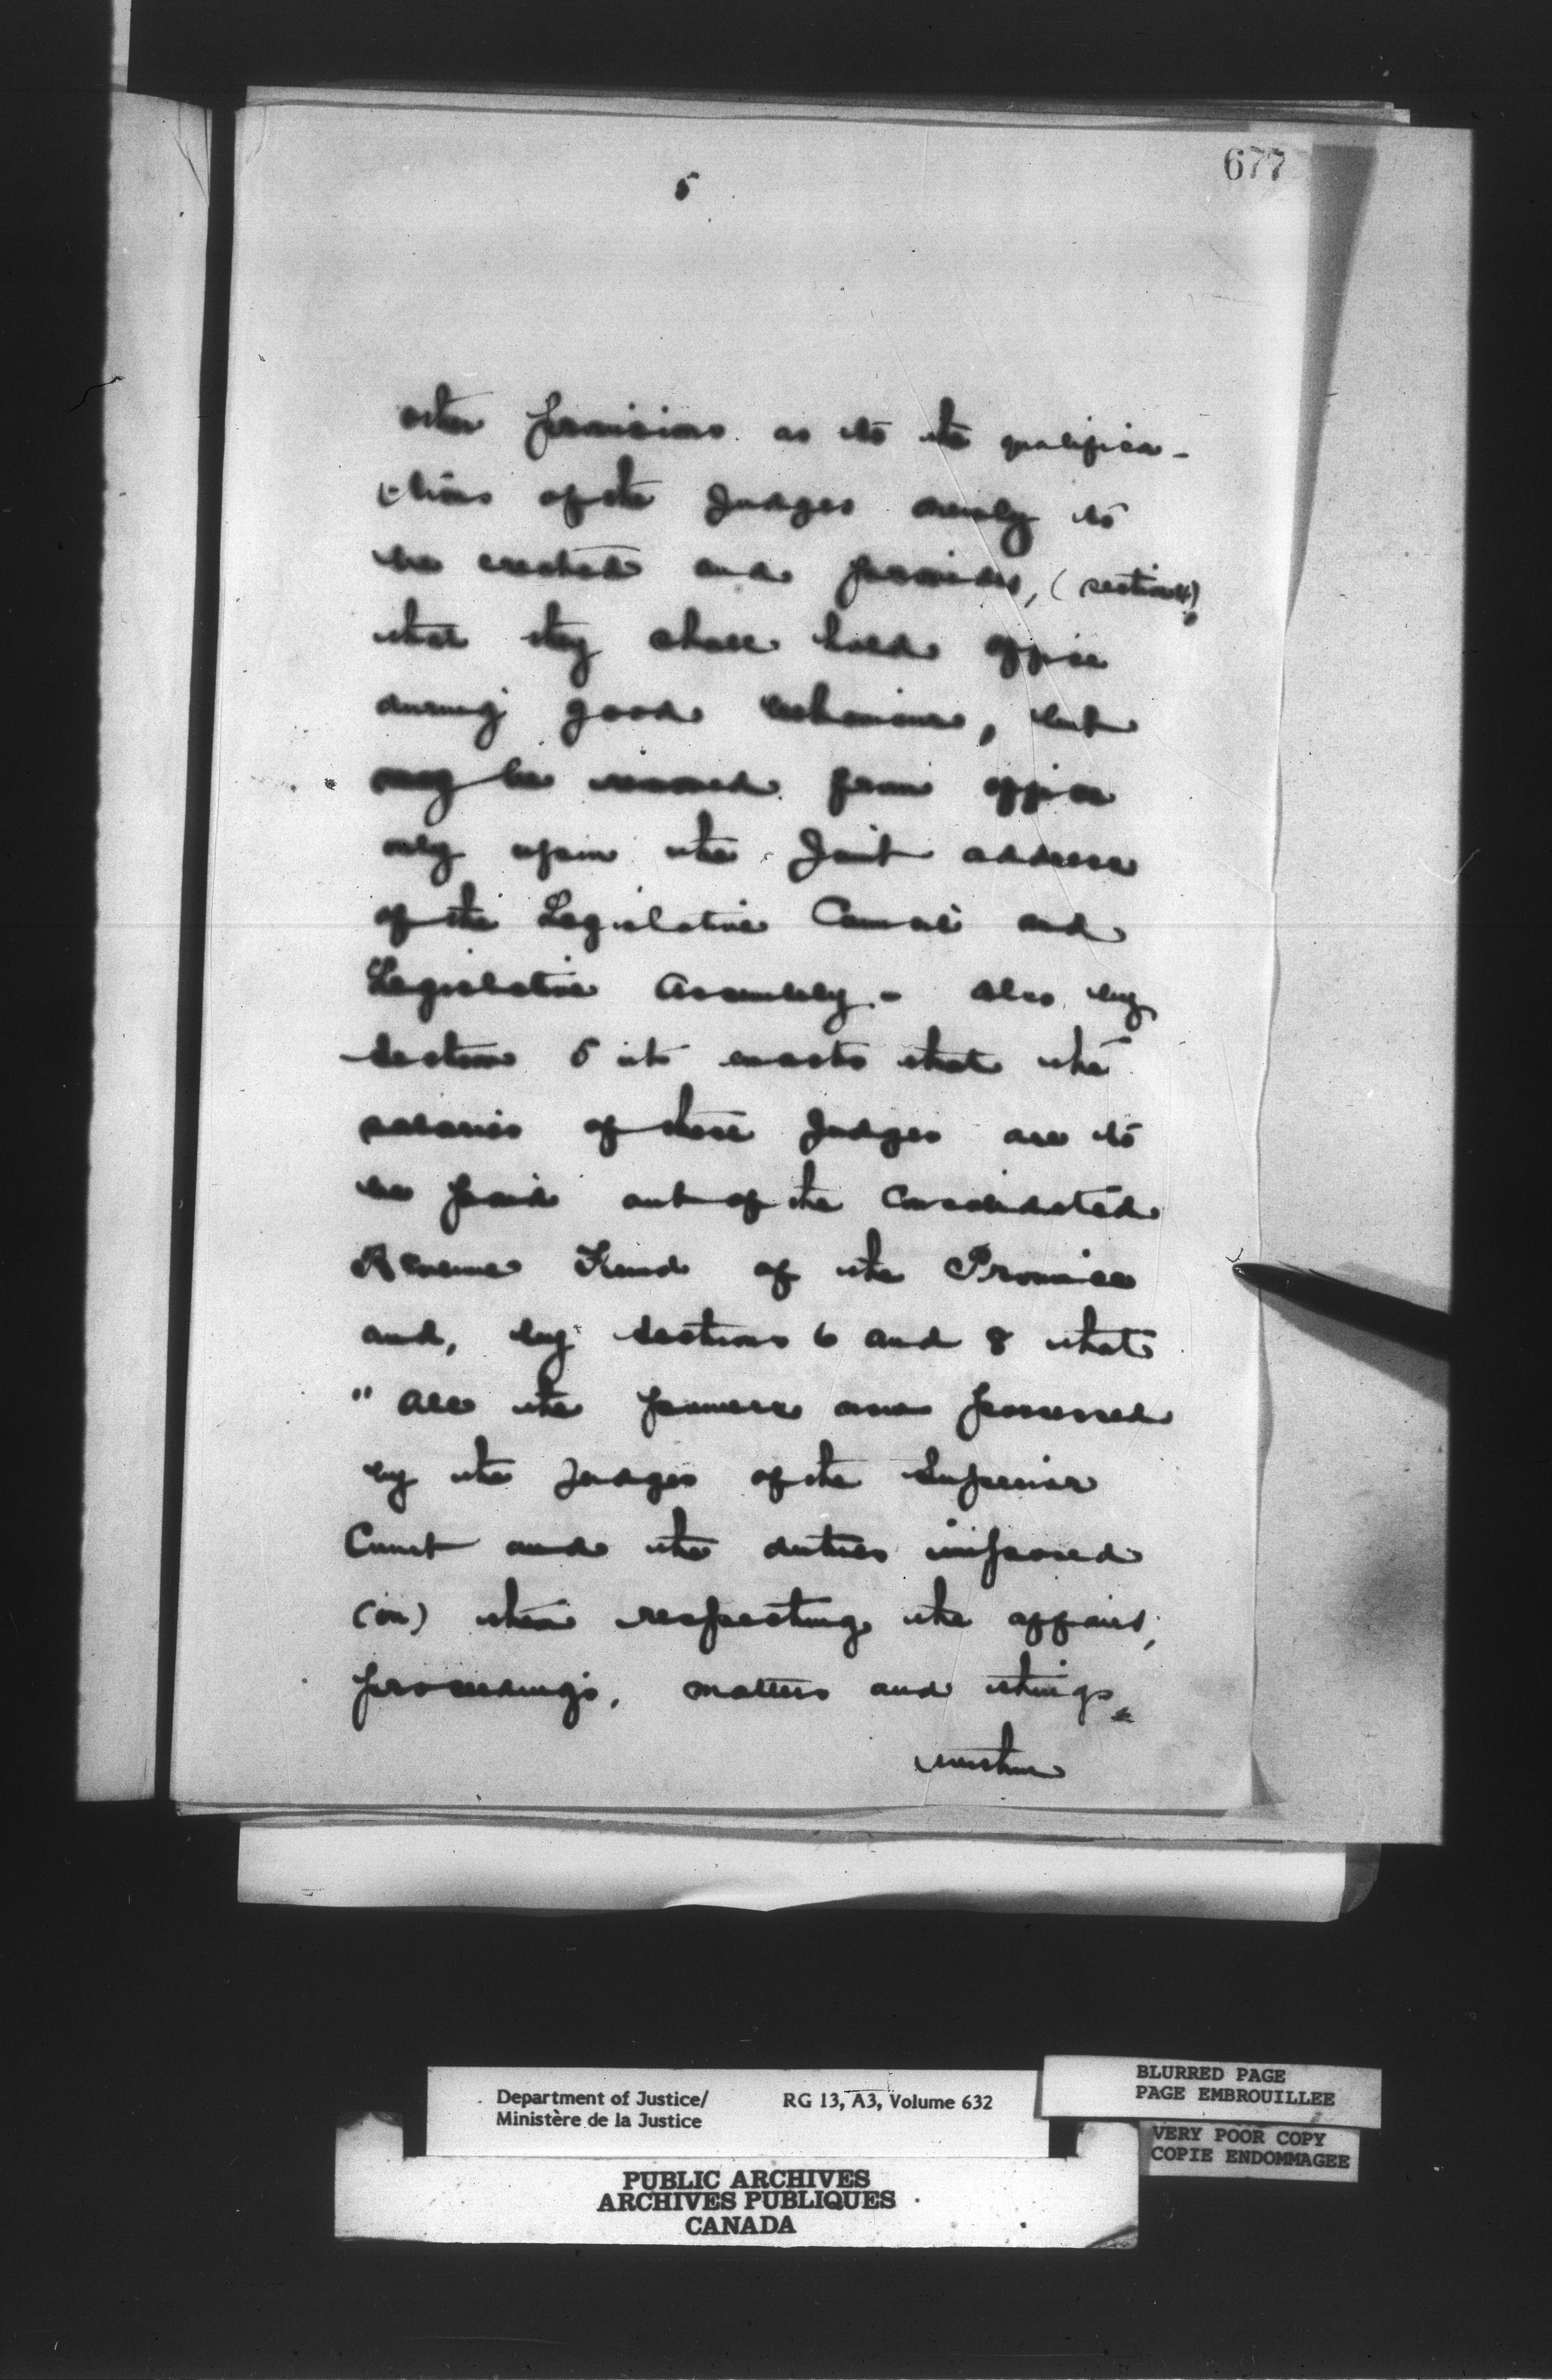 677
5
other provisions as to the qualifica-
-tions of the Judges newly to
be created and provides, (section 4),
that they shall hold office
during good behaviour, but
may be removed from office
only upon the Joint address
of the Legislative Council and
Legislative Assembly - Also by
Section 5 it enacts that the
salaries of these Judges are to
be paid out of the Consolidated
Revenue Fund of the Province
and, by Sections 6 and 8 that
"All the powers now possessed
by the Judges of the Superior
Court and the duties imposed
(on) them respecting the affairs,
proceedings, matters and things
Department of Justice/
Ministère de la Justice
RG 13, A3, Volume 632
BLURRED PAGE
PAGE EMBROUILLEE
VERY POOR COPY
COPIE ENDOMMAGEE
PUBLIC ARCHIVES
ARCHIVES PUBLIQUES
CANADA